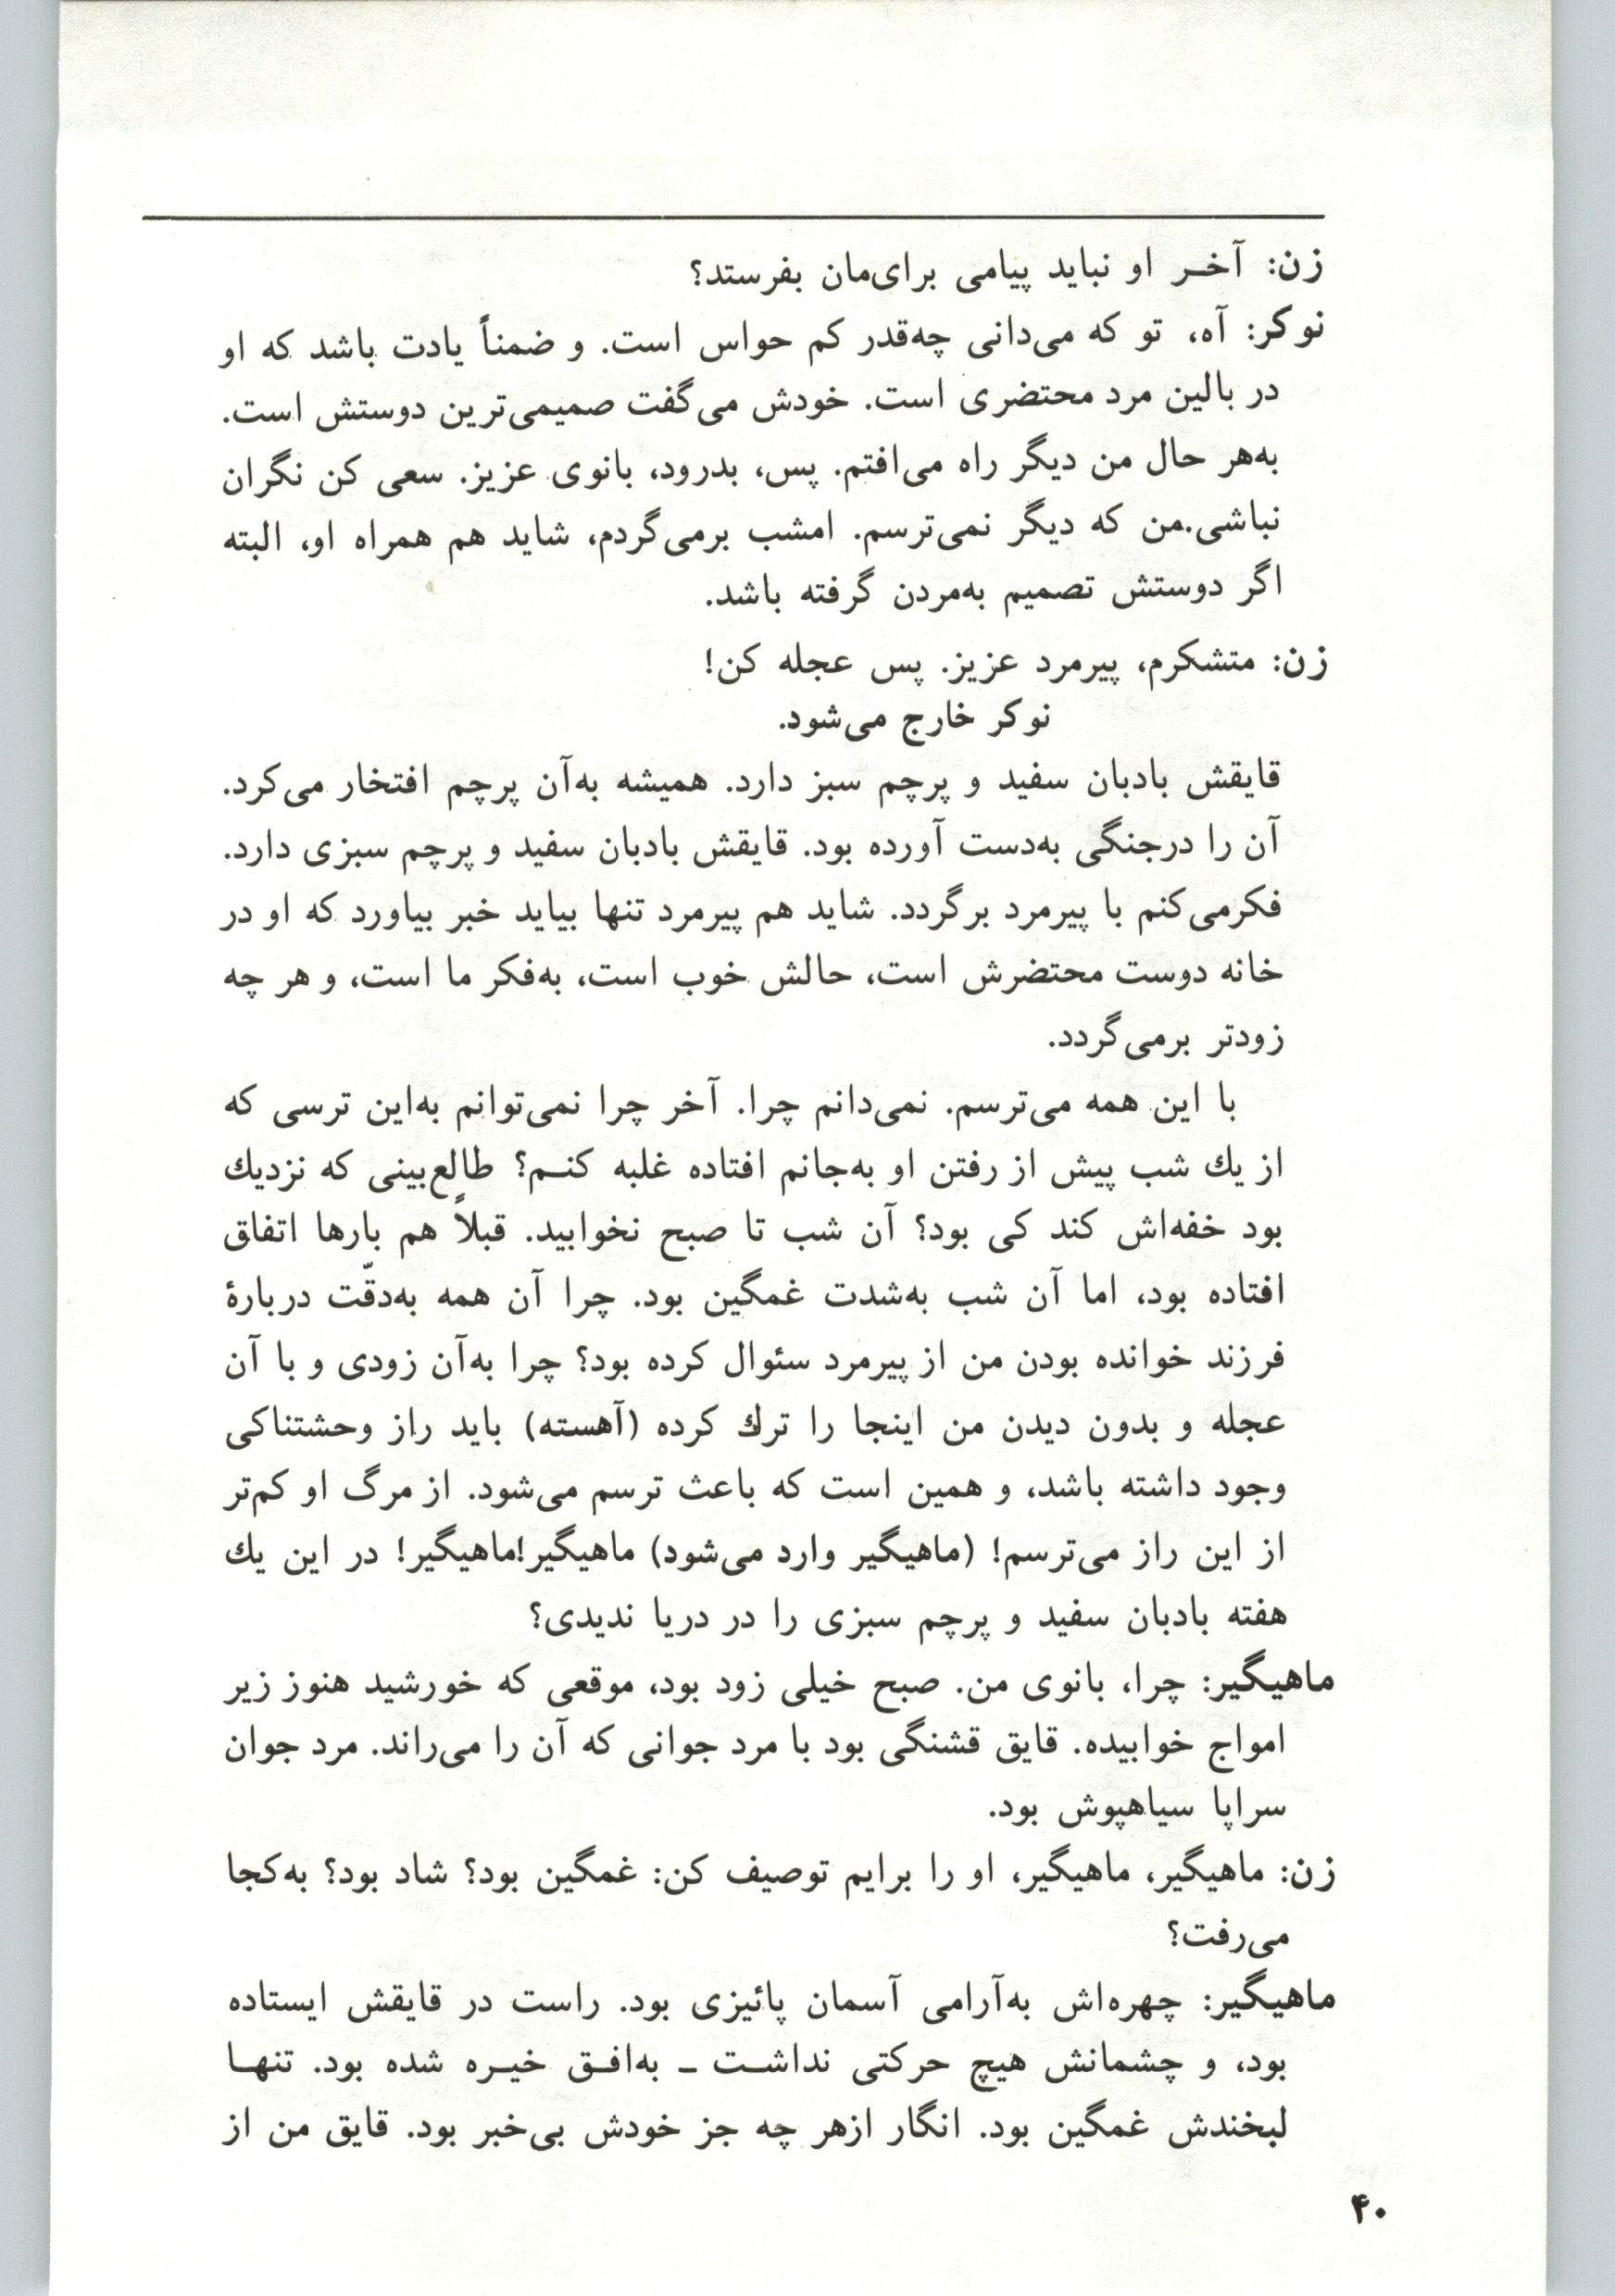 زن: آخـر او نباید پیامی برای‌مان بفرستد؟
نوکر: آه، تو که می‌دانی چه‌قدر کم حواس است. و ضمناً یادت باشد که او
در بالین مرد محتضری است. خودش می‌گفت صمیمی‌ترین دوستش است.
به‌هر حال من دیگر راه می‌افتم. پس، بدرود، بانوی عزیز. سعی کن نگران
نباشی.من که دیگر نمی‌ترسم. امشب برمی‌گردم، شاید هم همراه او، البته
اگر دوستش تصمیم به‌مردن گرفته باشد.
زن: متشکرم، پیرمرد عزیز. پس عجله کن!
نوکر خارج می‌شود.
قایقش بادبان سفید و پرچم سبز دارد. همیشه به‌آن پرچم افتخار می‌کرد.
آن را درجنگی به‌دست آورده بود. قایقش بادبان سفید و پرچم سبزی دارد.
فکرمی‌کنم با پیرمرد برگردد. شاید هم پیرمرد تنها بیاید خبر بیاورد که او در
خانه دوست محتضرش است، حالش خوب است، به‌فکر ما است، و هر چه
زودتر برمی‌گردد.
با این همه می‌ترسم. نمی‌دانم چرا. آخر چرا نمی‌توانم به‌این ترسی که
از یك شب پیش از رفتن او به‌جانم افتاده غلبه کنـم؟ طالع‌بینی که نزدیك
بود خفه‌اش کند کی بود؟ آن شب تا صبح نخوابید. قبلاً هم بارها اتفاق
افتاده بود، اما آن شب به‌شدت غمگین بود. چرا آن همه به‌دقّت دربارهٔ
فرزند خوانده بودن من از پیرمرد سئوال کرده بود؟ چرا به‌آن زودی و با آن
عجله و بدون دیدن من اینجا را ترك کرده (آهسته) باید راز وحشتناکی
وجود داشته باشد، و همین است که باعث ترسم می‌شود. از مرگ او کم‌تر
از این راز می‌ترسم! (ماهیگیر وارد می‌شود) ماهیگیر!ماهیگیر! در این یك
هفته بادبان سفید و پرچم سبزی را در دریا ندیدی؟
ماهیگیر: چرا، بانوی من. صبح خیلی زود بود، موقعی که خورشید هنوز زیر
امواج خوابیده. قایق قشنگی بود با مرد جوانی که آن را می‌راند. مرد جوان
سراپا سیاهپوش بود.
زن: ماهیگیر، ماهیگیر، او را برایم توصیف کن: غمگین بود؟ شاد بود؟ به‌کجا
می‌رفت؟
ماهیگیر: چهره‌اش به‌آرامی آسمان پائیزی بود. راست در قایقش ایستاده
بود، و چشمانش هیچ حرکتی نداشـت ـ به‌افـق خیـره شده بود. تنهـا
لبخندش غمگین بود. انگار ازهر چه جز خودش بی‌خبر بود. قایق من از
۴۰